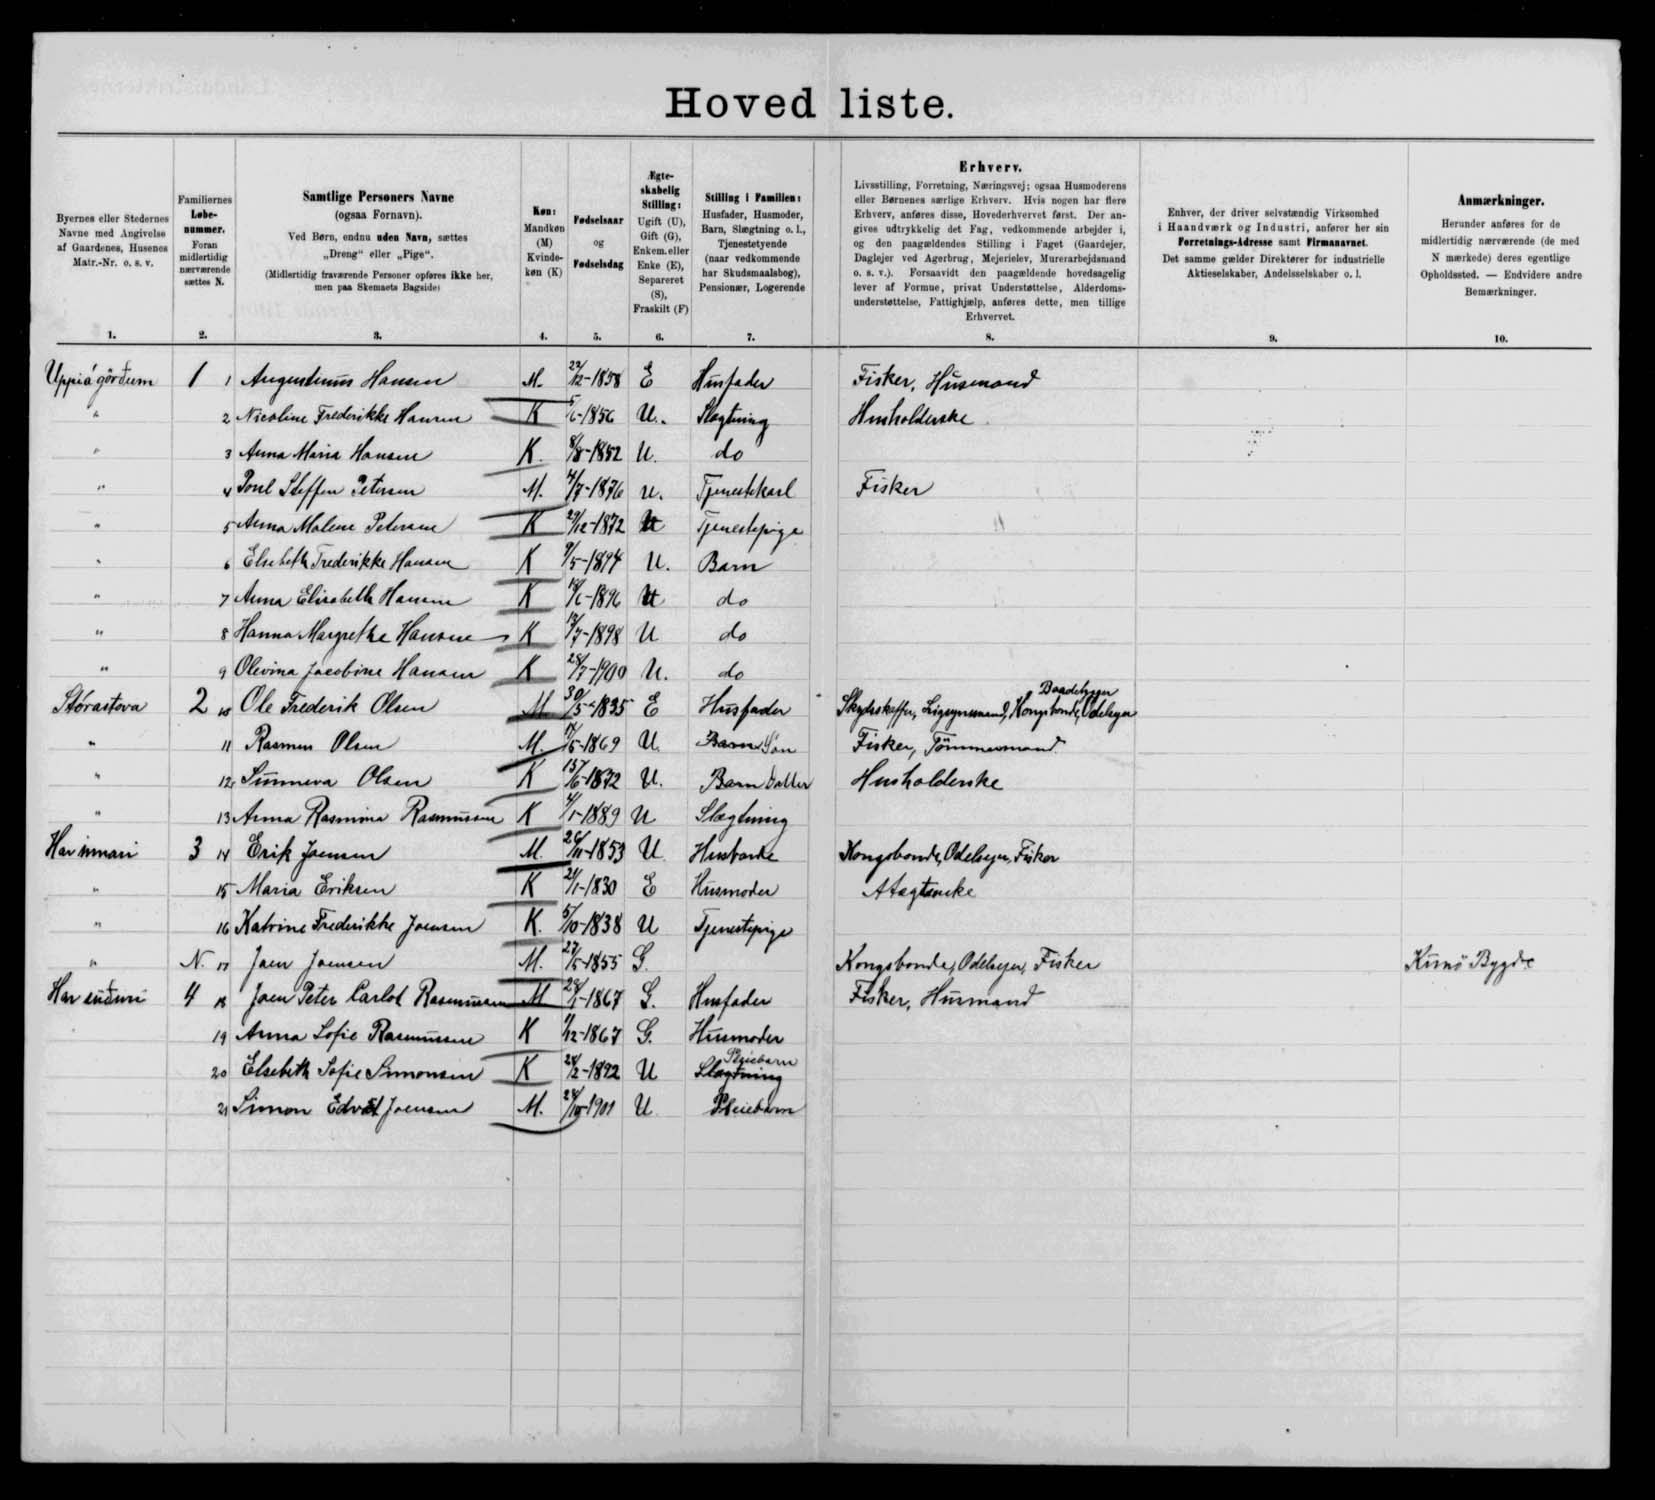 Hoved liste.
Byernes eller Stedernes Navne med Angivelse af Gaardenes, Husenes Matr.-Nr. o. s. v.
Familiernes Løbe-nummer. Foran midlertidig nærværende sættes N.
Samtlige Personers Navne
(ogsaa Fornavn).
Ved Børn, endnu uden Navn, sættes
„Dreng“ eller „Pige“.
(Midlertidig fraværende Personer opføres ikke her,
men paa Skemaets Bagside)
Køn: Mandkøn (M) Kvinde-køn (K)
Fødselsaar og Fødselsdag
Ægte-skabelig Stilling: Ugift (U), Gift (G), Enkem. eller Enke (E), Separeret (S), Fraskilt (F)
Stilling i Familien: Husfader, Husmoder, Barn, Slægtning o. l., Tjenestetyende (naar vedkommende har Skudsmaalsbog), Pensionær, Logerende
Erhverv.
Livsstilling, Forretning, Næringsvej; ogsaa Husmoderens
eller Børnenes særlige Erhverv. Hvis nogen har flere
Erhverv, anføres disse, Hovederhvervet først. Der an-
gives udtrykkelig det Fag, vedkommende arbejder i,
og den paagældendes Stilling i Faget (Gaardejer,
Daglejer ved Agerbrug, Mejerielev, Murerarbejdsmand
o. s. v.). Forsaavidt den paagældende hovedsagelig
lever af Formue, privat Understøttelse, Alderdoms-
understøttelse, Fattighjælp, anføres dette, men tillige
Erhvervet.
Enhver, der driver selvstændig Virksomhed
i Haandværk og Industri, anfører her sin
Forretnings-Adresse samt Firmanavnet.
Det samme gælder Direktører for industrielle
Aktieselskaber, Andelsselskaber o. l.
Anmærkninger.
Herunder anføres for de
midlertidig nærværende (de med
N mærkede) deres egentlige
Opholdssted. — Endvidere andre
Bemærkninger.
1. 2. 3. 4. 5. 6. 7. 8. 9. 10.
Uppiá gørðum 1 1 Augustinus Hansen M. 22/12-1858 E Husfader Fisker, Husmand
" 2 Nicoline Frederikke Hansen K 5/6-1856 U. Slægtning Husholderske
" 3 Anna Maria Hansen K. 8/8-1852 U. do
" 4 Poul Steffen Petersen M. 4/7-1876 U. Tjenestekarl Fisker
" 5 Anna Malene Petersen K 29/12-1872 U Tjenestepige
" 6 Elsebeth Frederikke Hansen K 9/5-1894 U. Barn
" 7 Anna Elisabeth Hansen K /6-1896 U do
" 8 Hanna Margrethe Hansen K /7-1898 U do
" 9 Olevina Jacobine Hansen K 28/7-1900 U. do
Stórastova 2 10 Ole Frederik Olsen M 30/5-1835 E Husfader Skydsskaffer, Ligsynsmand, Kongsbonde, Odelsejer Baadebygger
" 11 Rasmus Olsen M. /5-1869 U. Barn Søn Fisker, Tømmermand
" 12 Sunneva Olsen K 15/6-1872 U. Barn Datter Husholderske
" 13 Anna Rasmina Rasmussen K 4/1-1889 U Slægtning
Har innari 3 14 Erik Joensen M. 26/11-1853 U Husbonde Kongsbonde, Odelsejer, Fisker
" 15 Maria Eriksen K 21/1-1830 E Husmoder Aftægtsenke
" 16 Katrine Frederikke Joensen K. 5/10-1838 U Tjenestepige
" N. 17 Joen Joensen M. 27/5-1855 G. Kongsbonde, Odelsejer, Fisker Kunø Bygd
Har suðuri 4 18 Joen Peter Carlot Rasmussen M -1867 G. Husfader Fisker, Husmand
19 Anna Sofie Rasmussen K /12-1867 G. Husmoder
20 Elsebeth Sofie Simonsen K 28/2-1892 U Slægtning Pleiebarn
21 Simon Edvard Joensen M. 24/10-1901 U Pleiebarn